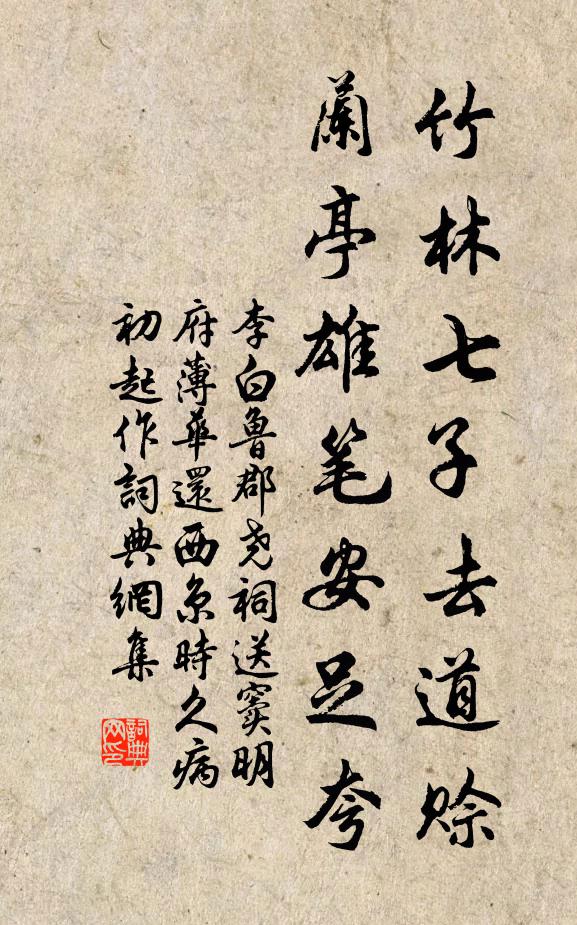 竹林七子去道賒
蘭亭雄笔安足夸
李白魯郡尧祠送竇明
府薄華還西京時久病
初起作詞典網集
詞典网印